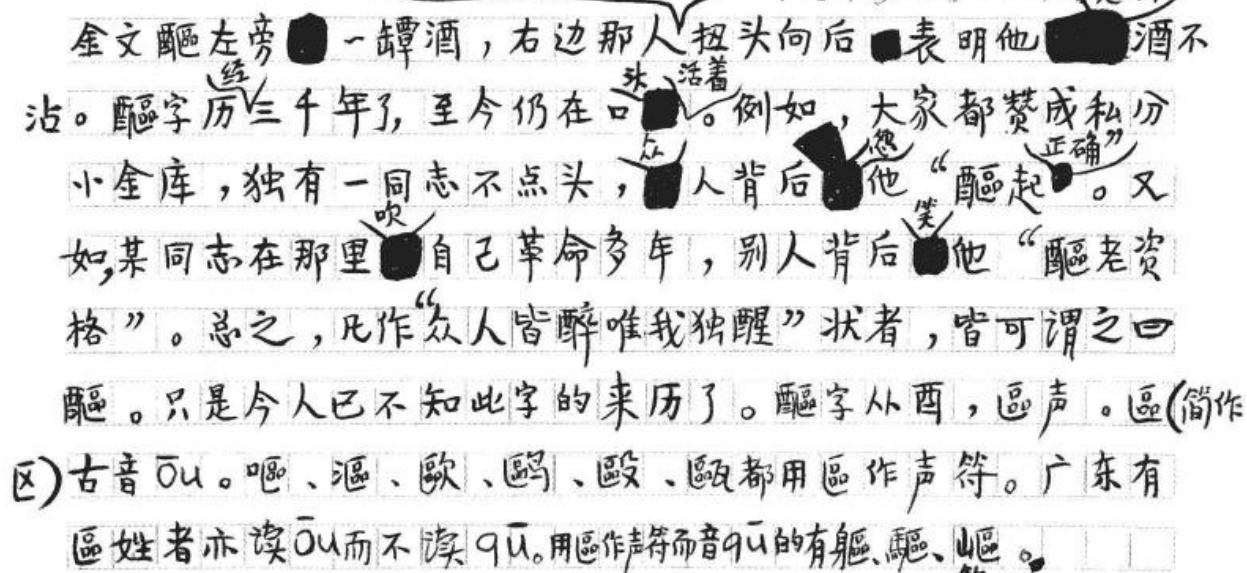 金文醧左旁一罈酒，右边那人扭头向后表明他酒不
沾。醧字历经三千年了，至今仍在口头活着。例如，大家都赞成私分
小金库，独有一同志不点头，众人背后怨他“醧起正确”。又
如，某同志在那里吹自己革命多年，别人背后笑他“醧老资
格”。总之，凡作“众人皆醉唯我独醒”状者，皆可谓之曰
醧。只是今人已不知此字的来历了。醧字从酉，區声。區(简作
区)古音ōu。嘔、漚、歐、鷗、毆、甌都用區作声符。广东有
區姓者亦读ōu而不读qū。用區作声符而音qū的有軀、驅、嶇。